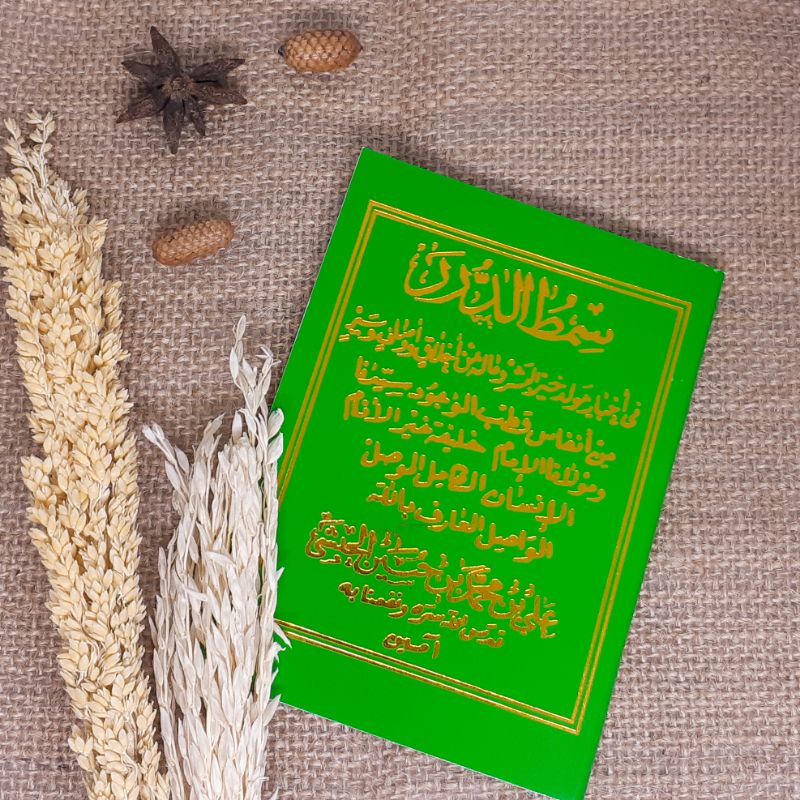 سِمْطُ الدُّرَر
في أخبار مولد خير البشر وما له من أخلاق وأوصاف وسير
من أنفاس قطب الوجود سيّدنا
ومولانا الإمام خليفة خير الأنام
الإنسان الكامل الموصل
الواصل العارف بالله
علي بن محمد بن حسين الحبشي
قدس الله سره ونفعنا به
آمين